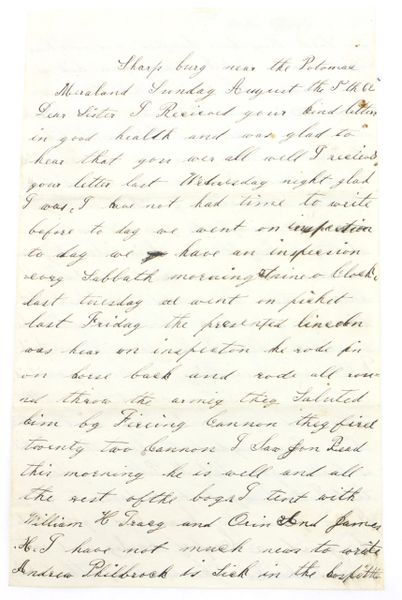 Sharp burg near the Potomac
Meraland Sunday August the 5 th 62
Dear Sister I Recieved your kind letter
in good health and was glad to
hear that you wer all well I recieved
your letter last Wedwesday night glad
I was, I have not had time to write
before to day we went on inspection
to day we have an inspecsion
every Sabbath morning at nine o Clock
last tuesday we went on picket
last Friday the presented lincoln
was hear on inspection he rode in
on horse back and rode all rou-
nd throw the armey they Saluted
him by Fireing Cannon they fired
twenty two Cannon I Saw Jon Read
this morning he is well and all
the rest of the boys I tent with
William H Tracy and Orin and James
H. I have not much news to write
Andrew Philbrock is Sick in the hospittle